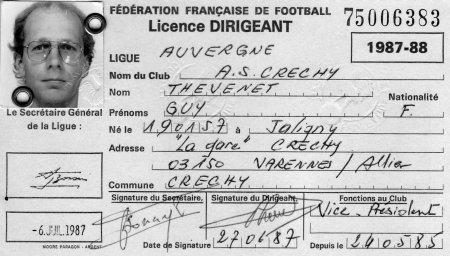 FÉDÉRATION FRANÇAISE DE FOOTBALL
Licence DIRIGEANT
75006383
1987-88
LIGUE AUVERGNE
Nom du Club A.S. CRECHY
Nom THEVENET
Prénoms GUY
Nationalité F.
Né le 190157 à Jaligny
Adresse "La gare" CRECHY
03150 VARENNES / Allier
Commune CRECHY
Le Secrétaire Général
de la Ligue :
-6 JUIL. 1987
MOORE PARAGON - ARGENT
Signature du Secrétaire,
Signature du Dirigeant,
Fonctions au Club
Vice-Président
Date de Signature 270687
Depuis le 240585